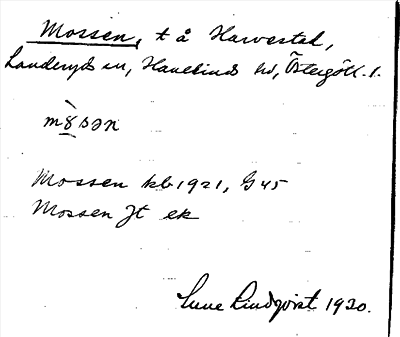 Mossen, t å Harvestad,
Landeryds sn, Hanekinds hd, Östergötl. l.
mòsən
Mossen kb 1921, G 45
Mossen Jt ek
Sune Lindqvist 1920.